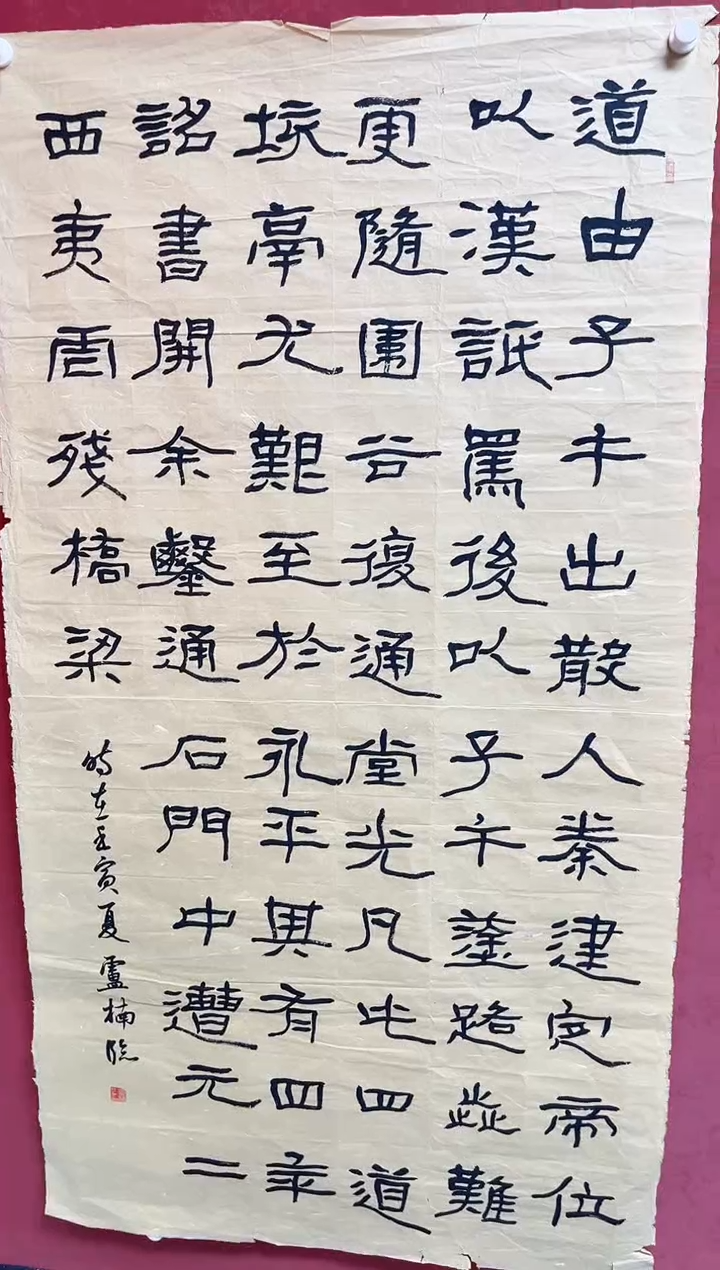 道由子午出散入秦建定帝位
以漢詆焉後以子午塗路歰難
更隨圍谷復通堂光凡此四道
垓鬲尤艱至於永平其有四年
詔書開余鑿通石門中遭元二
西夷虐殘橋梁
時在壬寅夏盧楠臨